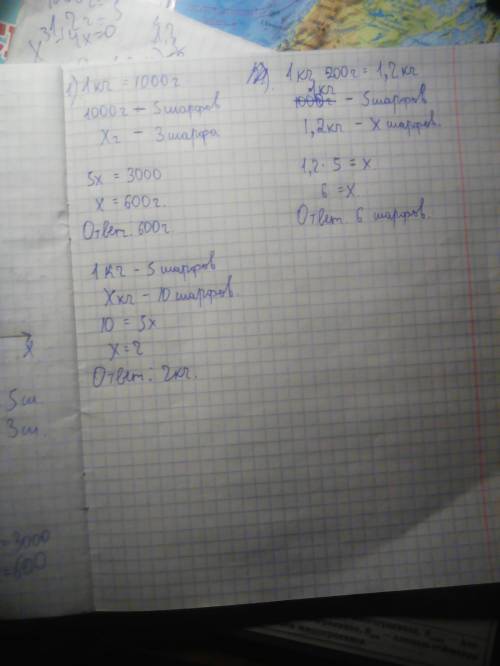 1) 1 кг = 1000 г
1000 г – 5 шарфов
Xг – 3 шарфа
5x = 3000
x = 600 г.
Ответ: 600 г.
1 кг – 5 шарфов
Xкг – 10 шарфов.
10 = 5x
x = 2
Ответ: 2 кг.
2). 1 кг 200г = 1,2 кг
1кг
1000 г – 5 шарфов
1,2 кг – x шарфов.
1,2 · 5 = x
6 = x
Ответ. 6 шарфов.
x
5 ш.
3 ш.
= 3000
= 600